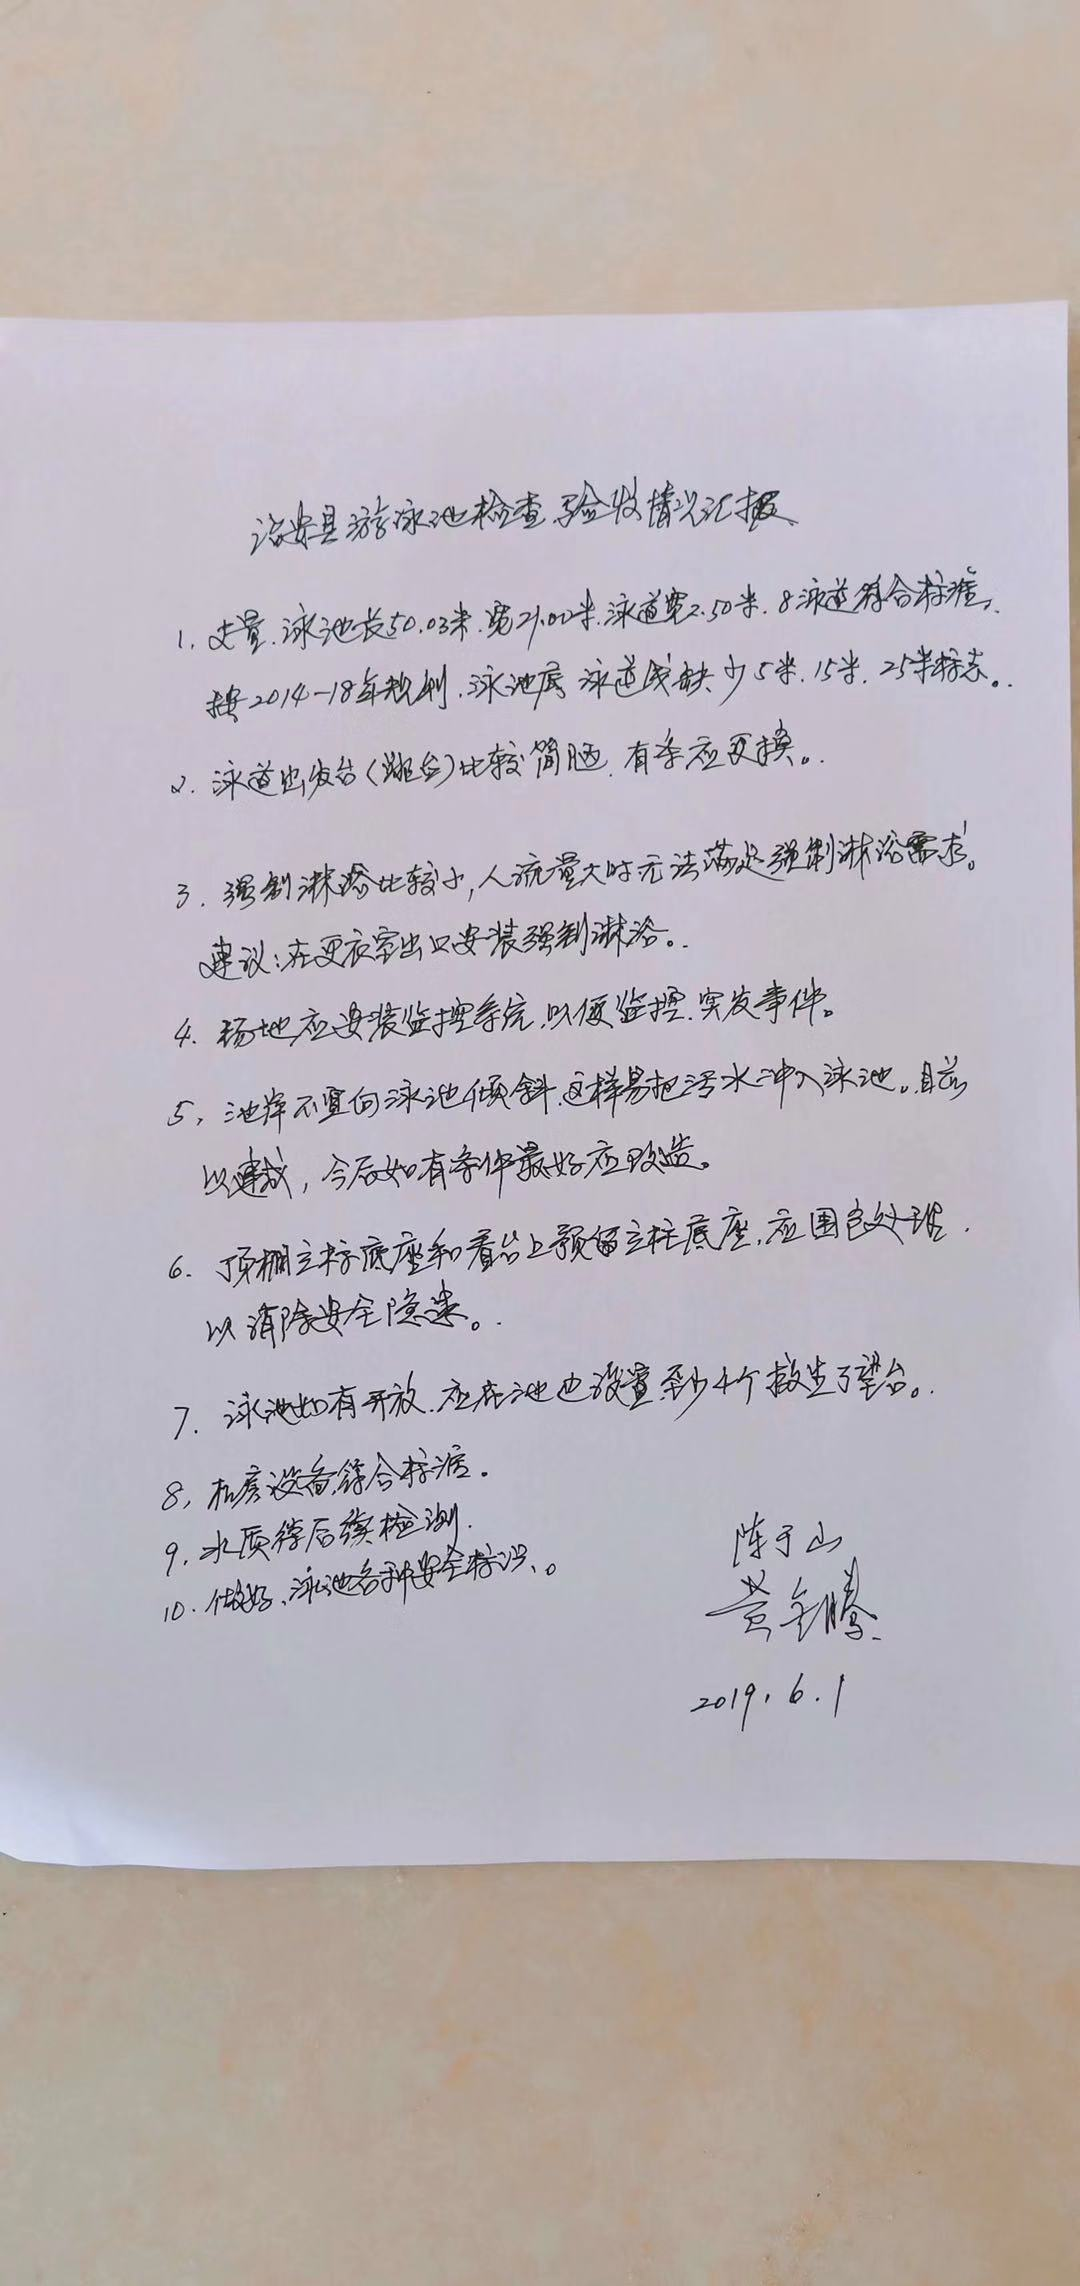 诏安县游泳池检查验收情况汇报
1. 丈量.泳池长50.03米.宽21.00米.泳道宽2.50米.8泳道符合标准,
按2014-18年规则.泳池底泳道线缺少5米.15米.25米标志。
2. 泳道出发台(跳台)比较简陋.有条应更换。
3. 强制淋浴比较少,人流量大时无法满足强制淋浴需求。
建议:在更衣室出口安装强制淋浴。
4. 场地应安装监控系统.以便监控.突发事件。
5, 池岸不宜向泳池倾斜.这样易把污水冲入泳池。目前
以建成,今后如有条件最好应改造。
6. 顶棚立柱底座和看台上预留立柱底座.应围包处理.
以消除安全隐患。
7. 泳池如有开放.应在池边设置至少4个救生了望台。
8, 机房设备符合标准。
9, 水质待后续检测.
10. 做好、泳池各种安全标识、。
陈于山
黄金腾
2019.6.1